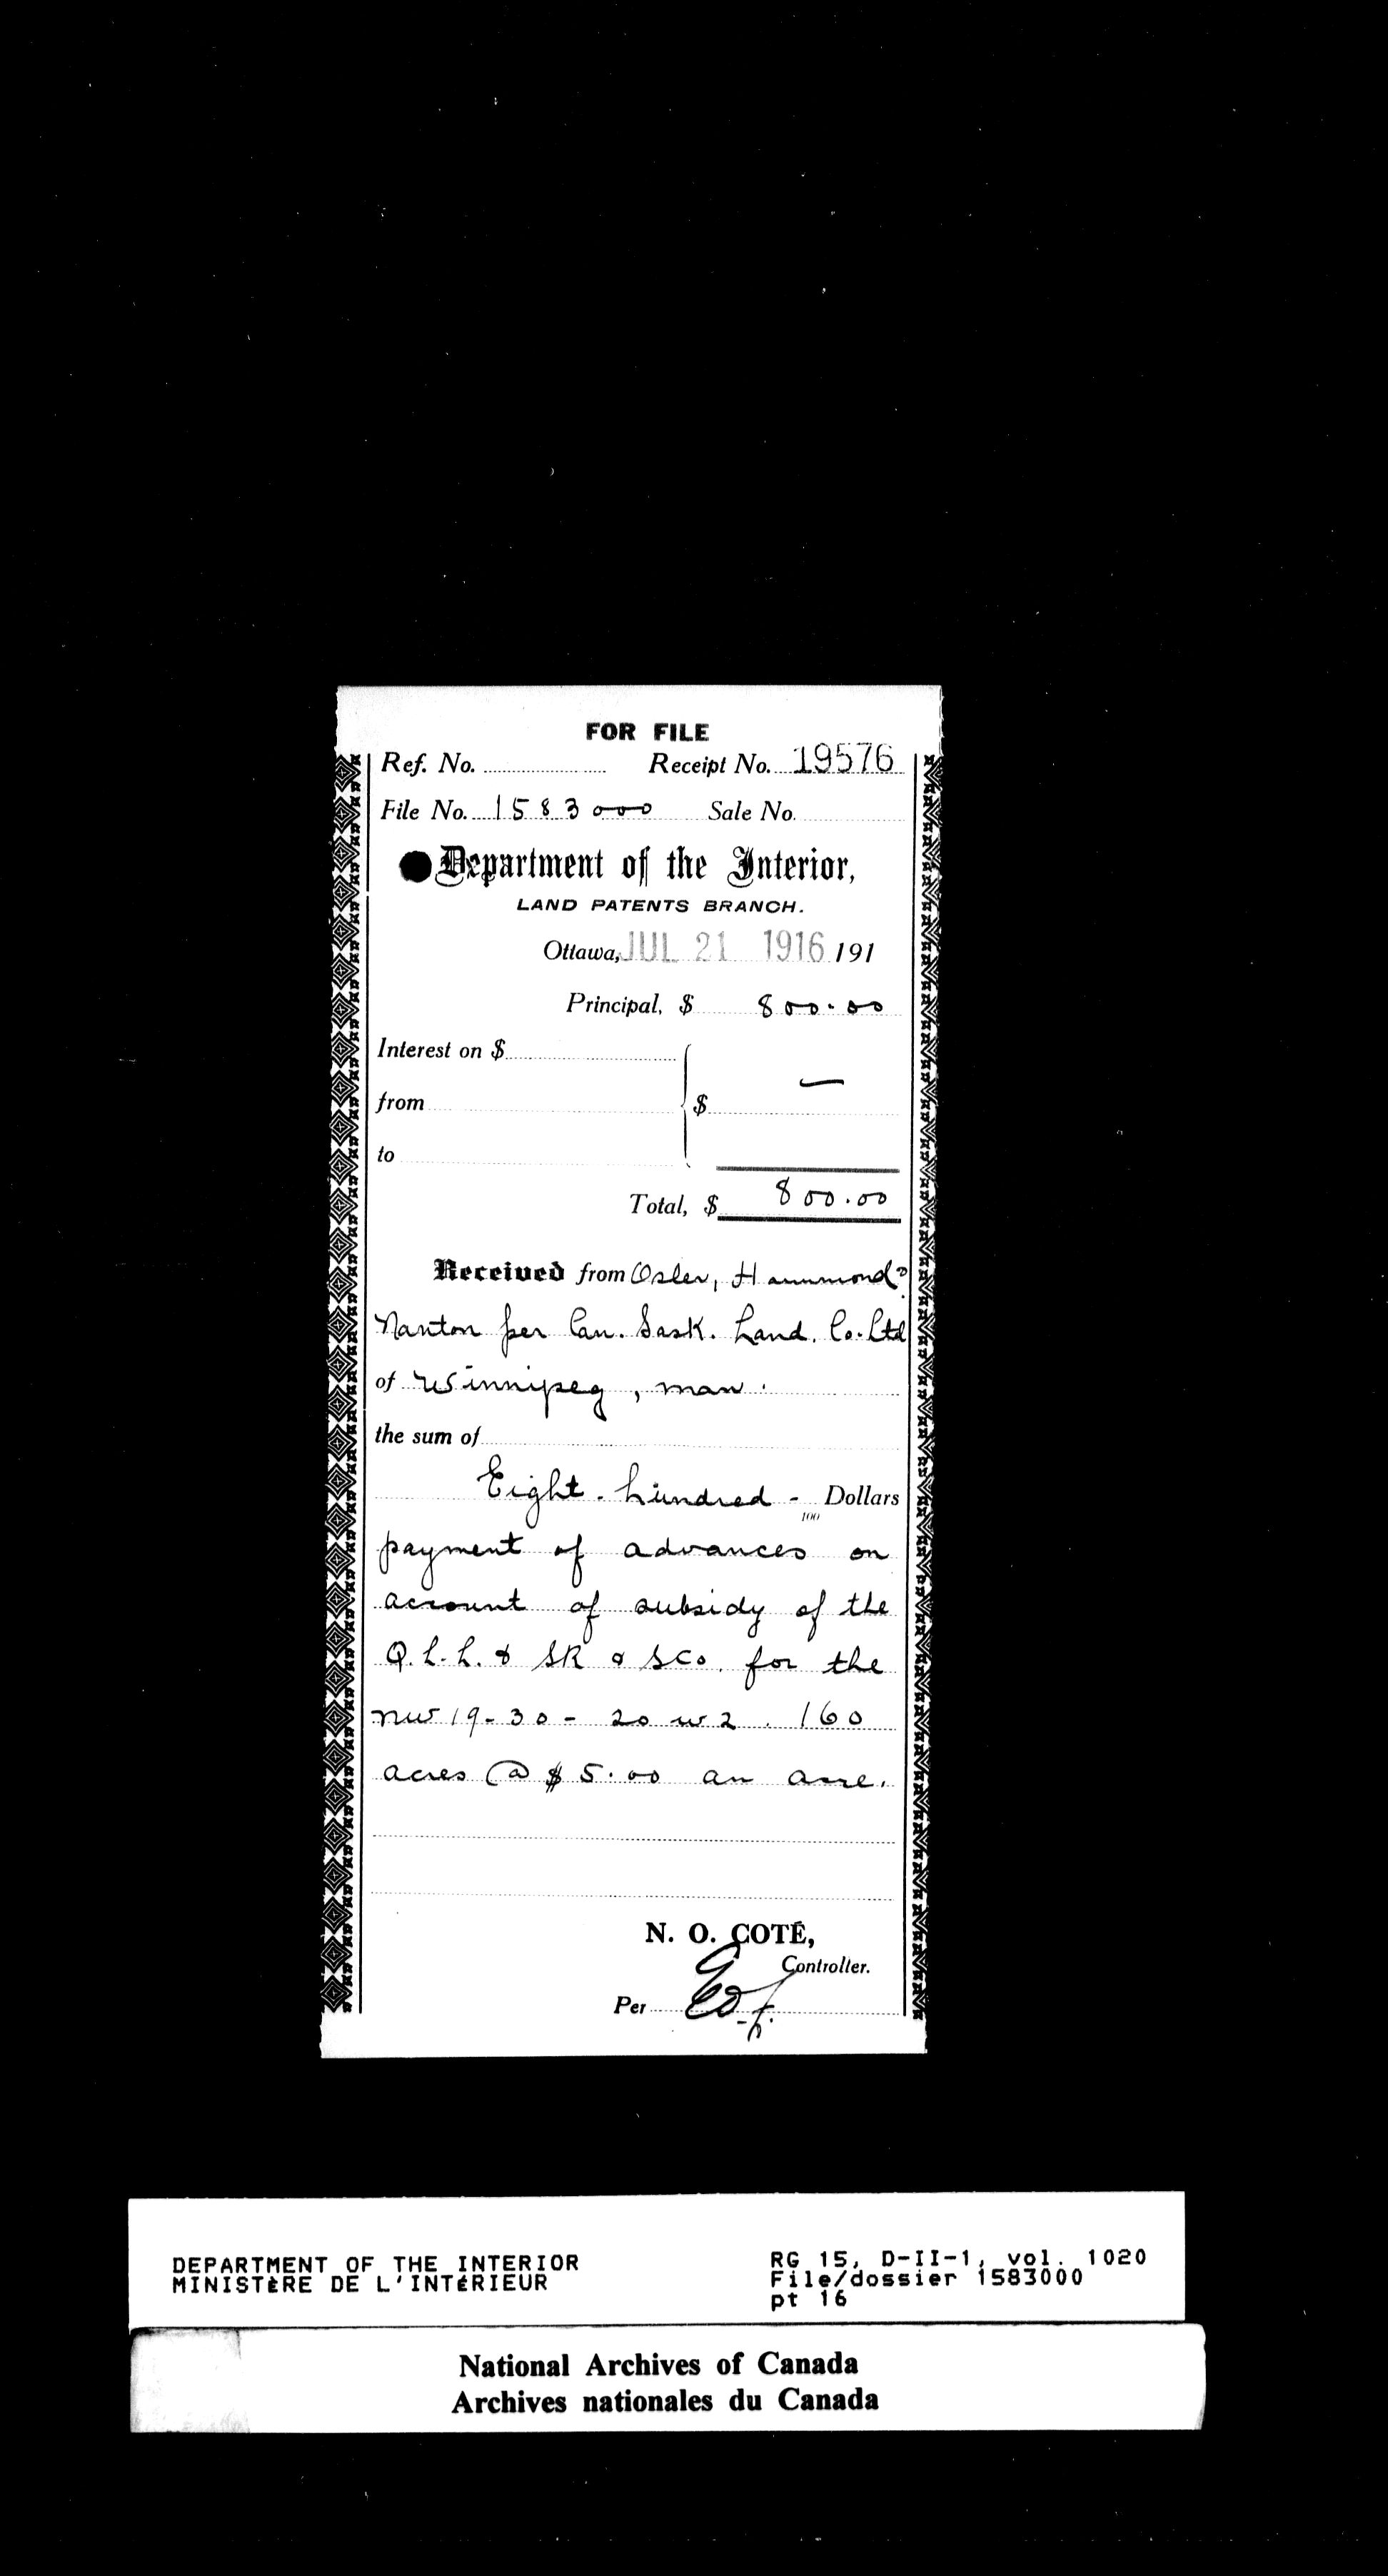 FOR FILE
Ref. No. Receipt No. 19576
File No. 1583000 Sale No.
Department of the Interior,
LAND PATENTS BRANCH.
Ottawa, JUL 21 1916 191
Principal, $ 800.00
Interest on $
from $ —
to
Total, $ 800.00
Received from Osler, Hammond &
Nanton per Can. Sask. Land. Co. Ltd
of Winnipeg, Man.
the sum of
Eight - hundred - Dollars
100
payment of advances on
account of subsidy of the
Q. L. L. & SR & SCo. for the
NW 19-30-20 W2. 160
acres @ $5.00 an acre.
N. O. COTÉ,
Controller.
Per
DEPARTMENT OF THE INTERIOR RG 15, D-II-1, vol. 1020
MINISTÈRE DE L'INTÉRIEUR File/dossier 1583000
pt 16
National Archives of Canada
Archives nationales du Canada